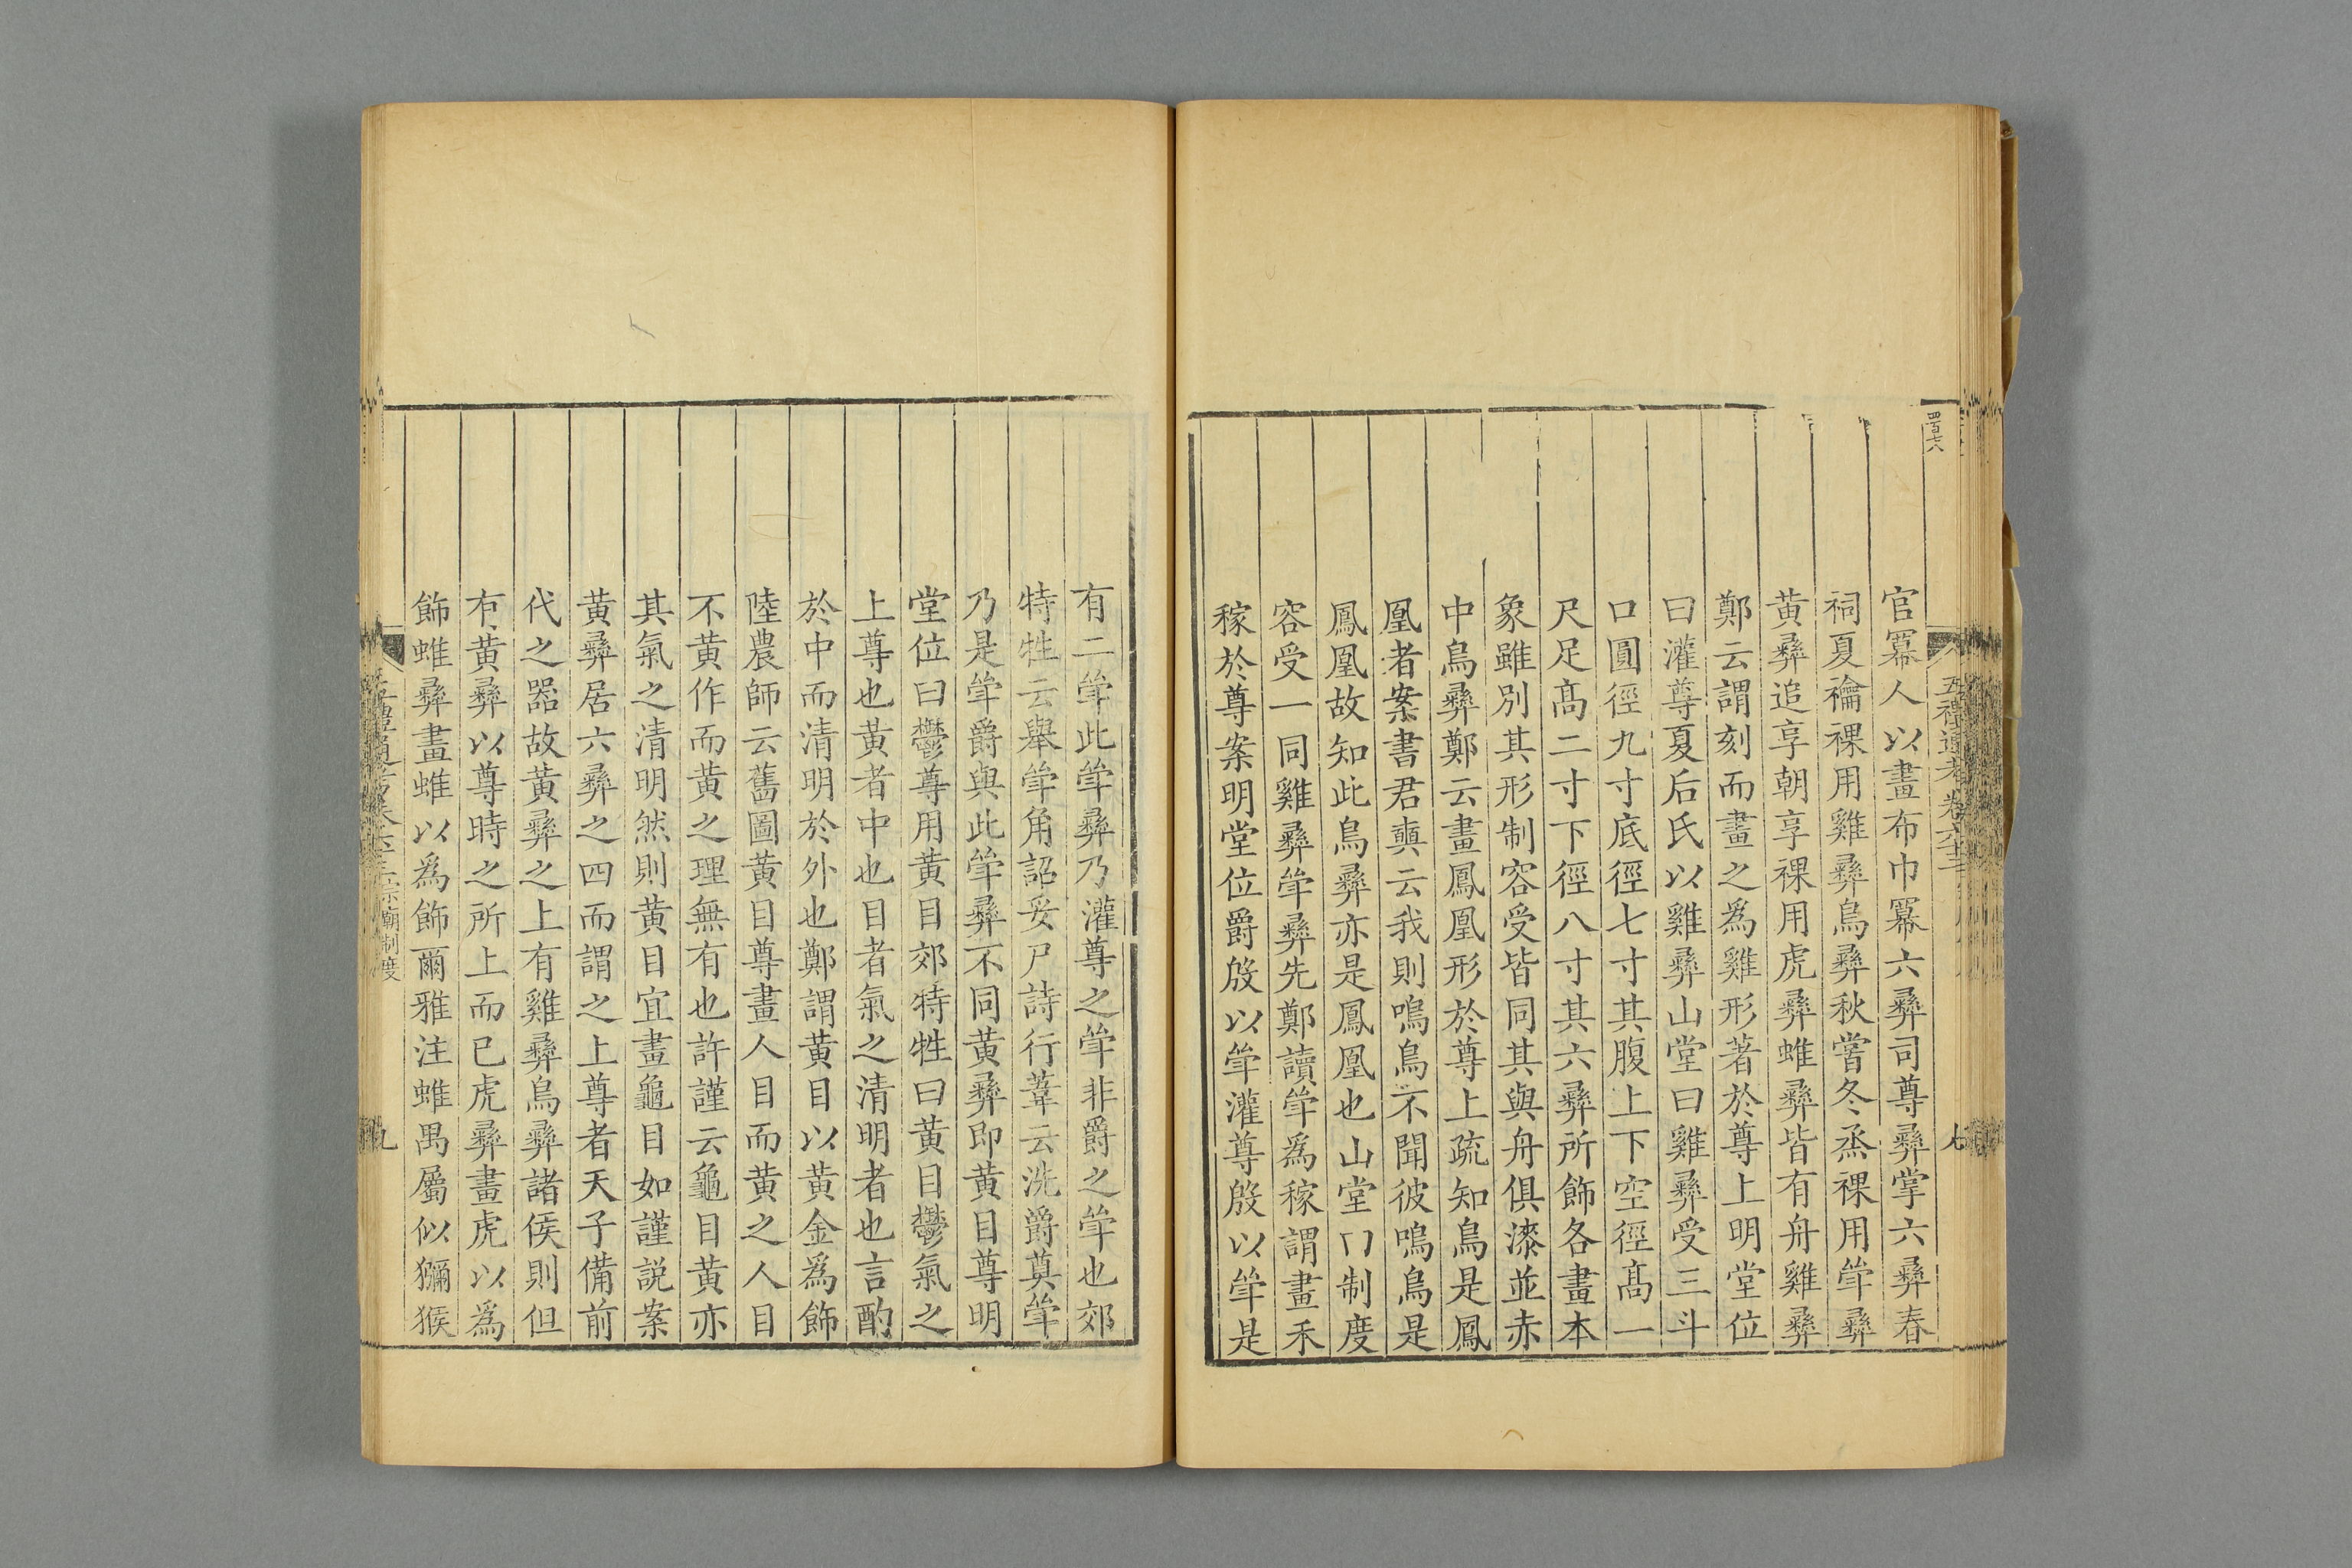 四百七八
五禮通考卷六十三
官冪人以畫布巾冪六彝司尊彝掌六彝春
祠夏禴祼用雞彝鳥彝秋嘗冬烝祼用斝彝
黃彝追享朝享祼用虎彝蜼彝皆有舟雞彝
鄭云謂刻而畫之為雞形著於尊上明堂位
曰灌尊夏后氏以雞彝山堂曰雞彝受三斗
口圓徑九寸底徑七寸其腹上下空徑髙一
尺足髙二寸下徑八寸其六彝所飾各畫本
象雖別其形制容受皆同其與舟俱漆並赤
中鳥彝鄭云畫鳳凰形於尊上疏知鳥是鳳
凰者案書君奭云我則鳴鳥不聞彼鳴鳥是
鳳凰故知此鳥彝亦是鳳凰也山堂曰制度
容受一同雞彝斝彝先鄭讀斝為稼謂畫禾
稼於尊案明堂位爵殷以斝灌尊殷以斝是
有二斝此斝彝乃灌尊之斝非爵之斝也郊
特牲云舉斝角詔妥尸詩行葦云洗爵奠斝
乃是斝爵與此斝彝不同黃彝即黃目尊明
堂位曰鬱尊用黃目郊特牲曰黃目鬱氣之
上尊也黃者中也目者氣之清明者也言酌
於中而清明於外也鄭謂黃目以黃金為飾
陸農師云舊圖黃目尊畫人目而黃之人目
不黃作而黃之理無有也許謹云龜目黃亦
其氣之清明然則黃目宜畫龜目如謹説案
黃彝居六彝之四而謂之上尊者天子備前
代之器故黃彝之上有雞彝鳥彝諸侯則但
有黃彝以尊時之所上而已虎彝畫虎以為
飾蜼彝畫蜼以為飾爾雅注蜼禺屬似獼猴
宗廟制度
九